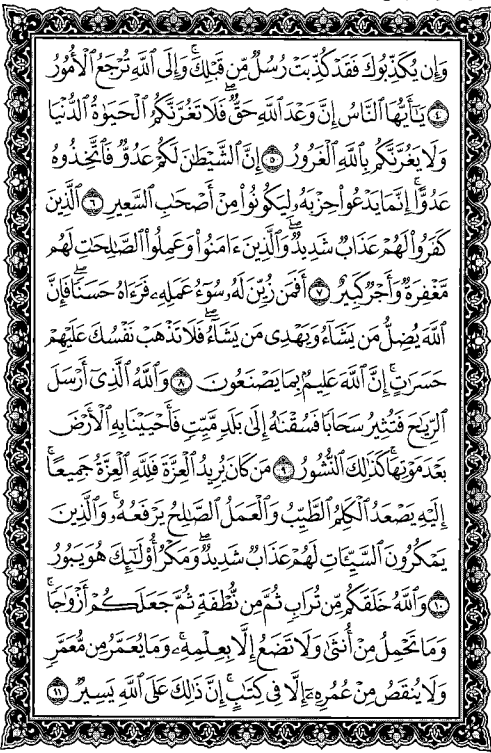 وَإِن يُكَذِّبُوكَ فَقَدْ كُذِّبَتْ رُسُلٌ مِّن قَبْلِكَ ۚ وَإِلَى ٱللَّهِ تُرْجَعُ ٱلْأُمُورُ
٤ يَـٰٓأَيُّهَا ٱلنَّاسُ إِنَّ وَعْدَ ٱللَّهِ حَقٌّ ۖ فَلَا تَغُرَّنَّكُمُ ٱلْحَيَوٰةُ ٱلدُّنْيَا
وَلَا يَغُرَّنَّكُم بِٱللَّهِ ٱلْغَرُورُ ٥ إِنَّ ٱلشَّيْطَـٰنَ لَكُمْ عَدُوٌّ فَٱتَّخِذُوهُ
عَدُوًّا ۚ إِنَّمَا يَدْعُوا۟ حِزْبَهُۥ لِيَكُونُوا۟ مِنْ أَصْحَـٰبِ ٱلسَّعِيرِ ٦ ٱلَّذِينَ
كَفَرُوا۟ لَهُمْ عَذَابٌ شَدِيدٌ ۖ وَٱلَّذِينَ ءَامَنُوا۟ وَعَمِلُوا۟ ٱلصَّـٰلِحَـٰتِ لَهُم
مَّغْفِرَةٌ وَأَجْرٌ كَبِيرٌ ٧ أَفَمَن زُيِّنَ لَهُۥ سُوٓءُ عَمَلِهِۦ فَرَءَاهُ حَسَنًا ۖ فَإِنَّ
ٱللَّهَ يُضِلُّ مَن يَشَآءُ وَيَهْدِى مَن يَشَآءُ ۖ فَلَا تَذْهَبْ نَفْسُكَ عَلَيْهِمْ
حَسَرَٰتٍ ۚ إِنَّ ٱللَّهَ عَلِيمٌۢ بِمَا يَصْنَعُونَ ٨ وَٱللَّهُ ٱلَّذِىٓ أَرْسَلَ
ٱلرِّيَـٰحَ فَتُثِيرُ سَحَابًا فَسُقْنَـٰهُ إِلَىٰ بَلَدٍ مَّيِّتٍ فَأَحْيَيْنَا بِهِ ٱلْأَرْضَ
بَعْدَ مَوْتِهَا ۚ كَذَٰلِكَ ٱلنُّشُورُ ٩ مَن كَانَ يُرِيدُ ٱلْعِزَّةَ فَلِلَّهِ ٱلْعِزَّةُ جَمِيعًا ۚ
إِلَيْهِ يَصْعَدُ ٱلْكَلِمُ ٱلطَّيِّبُ وَٱلْعَمَلُ ٱلصَّـٰلِحُ يَرْفَعُهُۥ ۚ وَٱلَّذِينَ
يَمْكُرُونَ ٱلسَّيِّـَٔاتِ لَهُمْ عَذَابٌ شَدِيدٌ ۖ وَمَكْرُ أُو۟لَـٰٓئِكَ هُوَ يَبُورُ
١٠ وَٱللَّهُ خَلَقَكُم مِّن تُرَابٍ ثُمَّ مِن نُّطْفَةٍ ثُمَّ جَعَلَكُمْ أَزْوَٰجًا ۚ
وَمَا تَحْمِلُ مِنْ أُنثَىٰ وَلَا تَضَعُ إِلَّا بِعِلْمِهِۦ ۚ وَمَا يُعَمَّرُ مِن مُّعَمَّرٍ
وَلَا يُنقَصُ مِنْ عُمُرِهِۦٓ إِلَّا فِى كِتَـٰبٍ ۚ إِنَّ ذَٰلِكَ عَلَى ٱللَّهِ يَسِيرٌ ١١